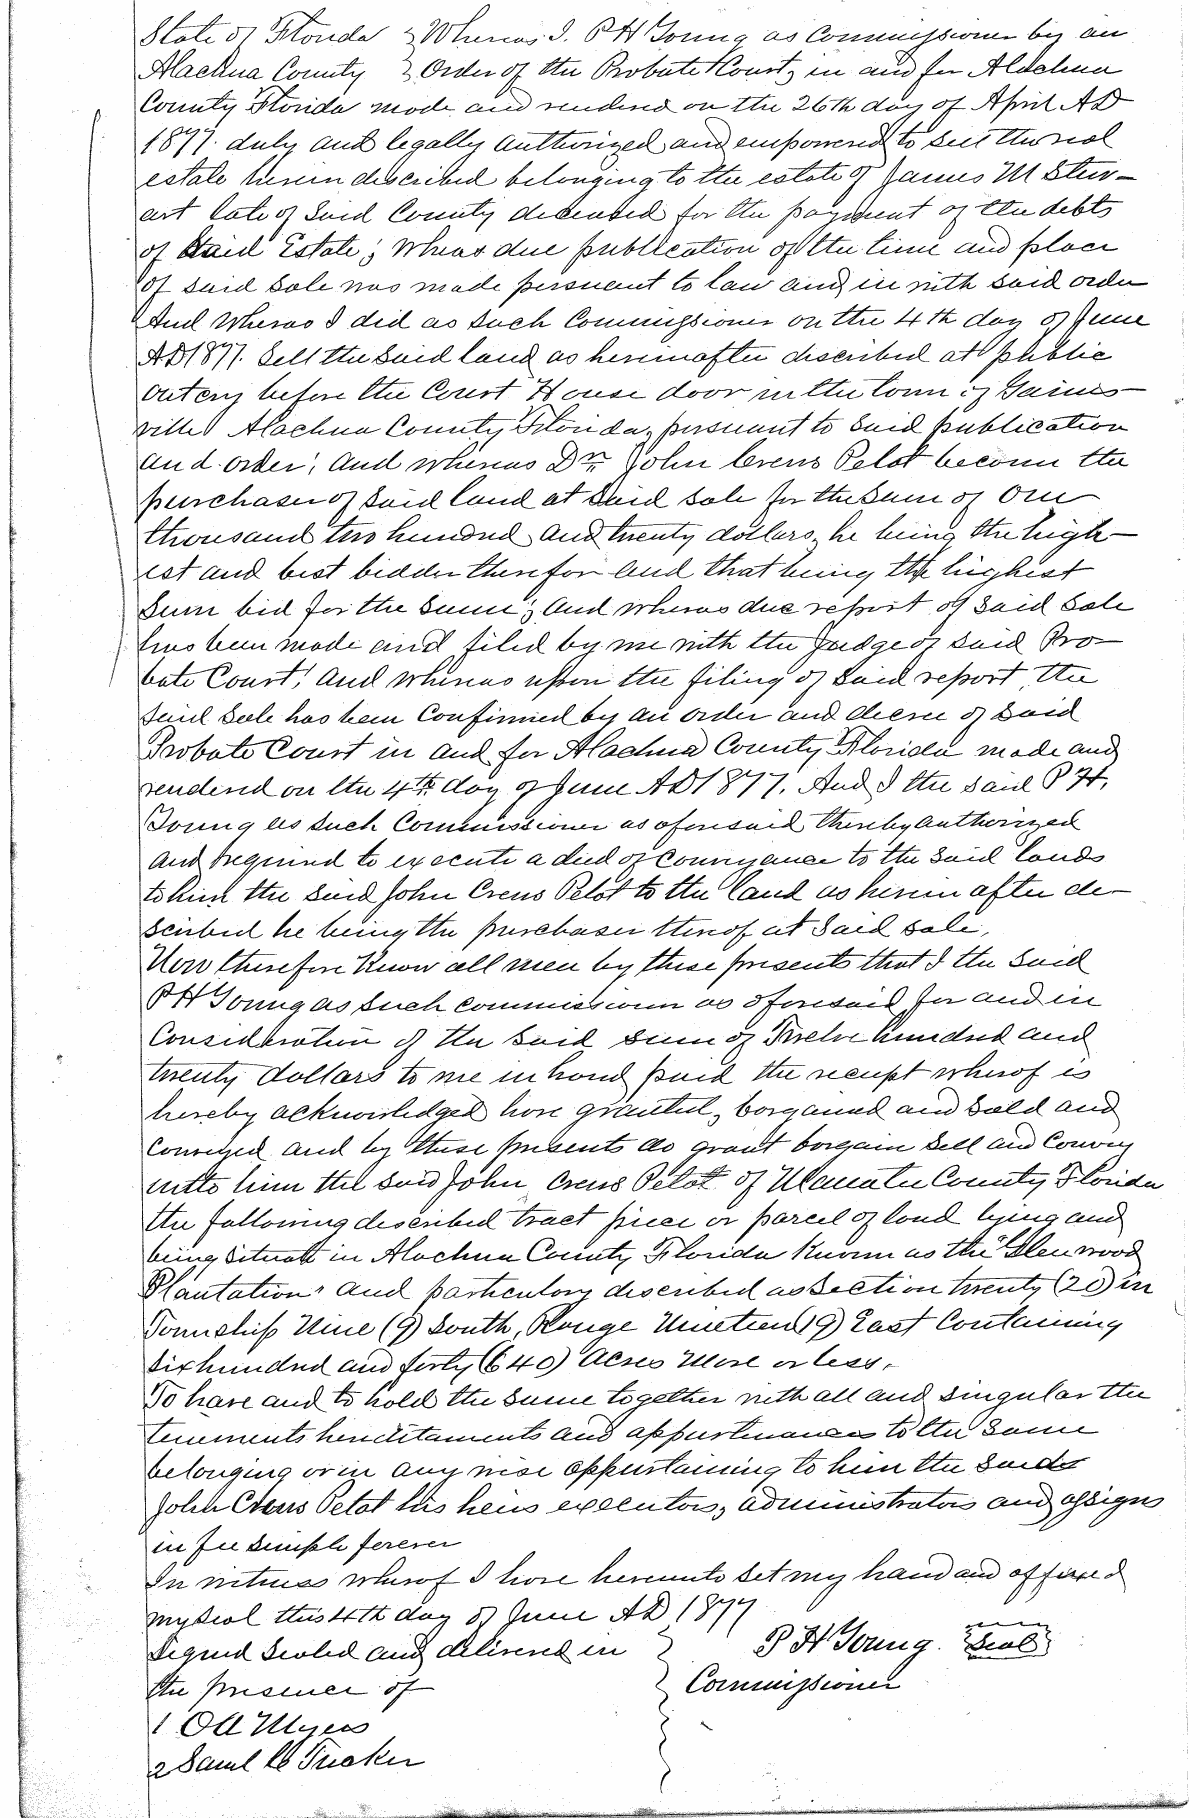 State of Florida } Whereas I. P H Young as Commissioner by an
Alachua County } Order of the Probate Court, in and for Alachua
County Florida made and rendered on the 26th day of April AD
1877. duly and legally authorized and empowered to sell the real
estate herein described belonging to the estate of James M Stew-
art late of said County deceased for the payment of the debts
of said Estate; Wheras due publication of the time and place
of said sale was made persuant to law and in with said order
And Wheras I did as such Commissioner on the 4th day of June
AD1877. Sell the said land as hereinafter discribed at public
outcry before the Court House door in the town of Gaines-
ville Alachua County Florida, pursuant to said publication
and order; And whereas Dr. John Crews Pelot became the
purchaser of said land at said sale for the sum of One
thousand two hundred and twenty dollars, he being the high-
est and best bidder therefor and that being the highest
sum bid for the same; And wheras due report of said sale
has been made and filed by me with the Judge of said Pro-
bate Court; And whereas upon the filing of said report the
said sale has been confirmed by an order and decree of said
Probate Court in and for Alachua County Florida made and
rendered on the 4th day of June AD1877. And I the said P H.
Young as such Commissioner as aforesaid thereby authorized
and required to execute a deed of conveyance to the said lands
to him the said John Crews Pelot to the land as herein after de-
scribed he being the purchaser thereof at said sale,
Now therefore Know all men by these presents that I the said
P H Young as such commissioner as aforesaid for and in
Consideration of the said sum of Twelve hundred and
twenty dollars to me in hand paid the receipt wherof is
hereby acknowledged have granted, bargained and sold and
conveyed and by these presents do grant bargain sell and Convey
unto him the said John Crews Pelot of Manatee County Florida
the following described tract piece or parcel of land lying and
being situate in Alachua County Florida Known as the "Glenwood
Plantation" and particulary described as Section twenty (20) in
Township Nine (9) South, Range Nineteen (19) East Containing
six hundred and forty (640) Acres More or less.
To have and to hold the same together with all and singular the
tenements hereditaments and appurtenances to the same
belonging or in any wise appurtaining to him the said
John Crews Pelot his heirs executors, administrators and assigns
in fee simple forever
In witness wherof I have hereunto set my hand and affixed
my seal this 4th day of June AD 1877
Signed Sealed and delivered in } P H Young. Seal
the presence of } Commissioner
1 O A Myers
2 Saml C Tucker